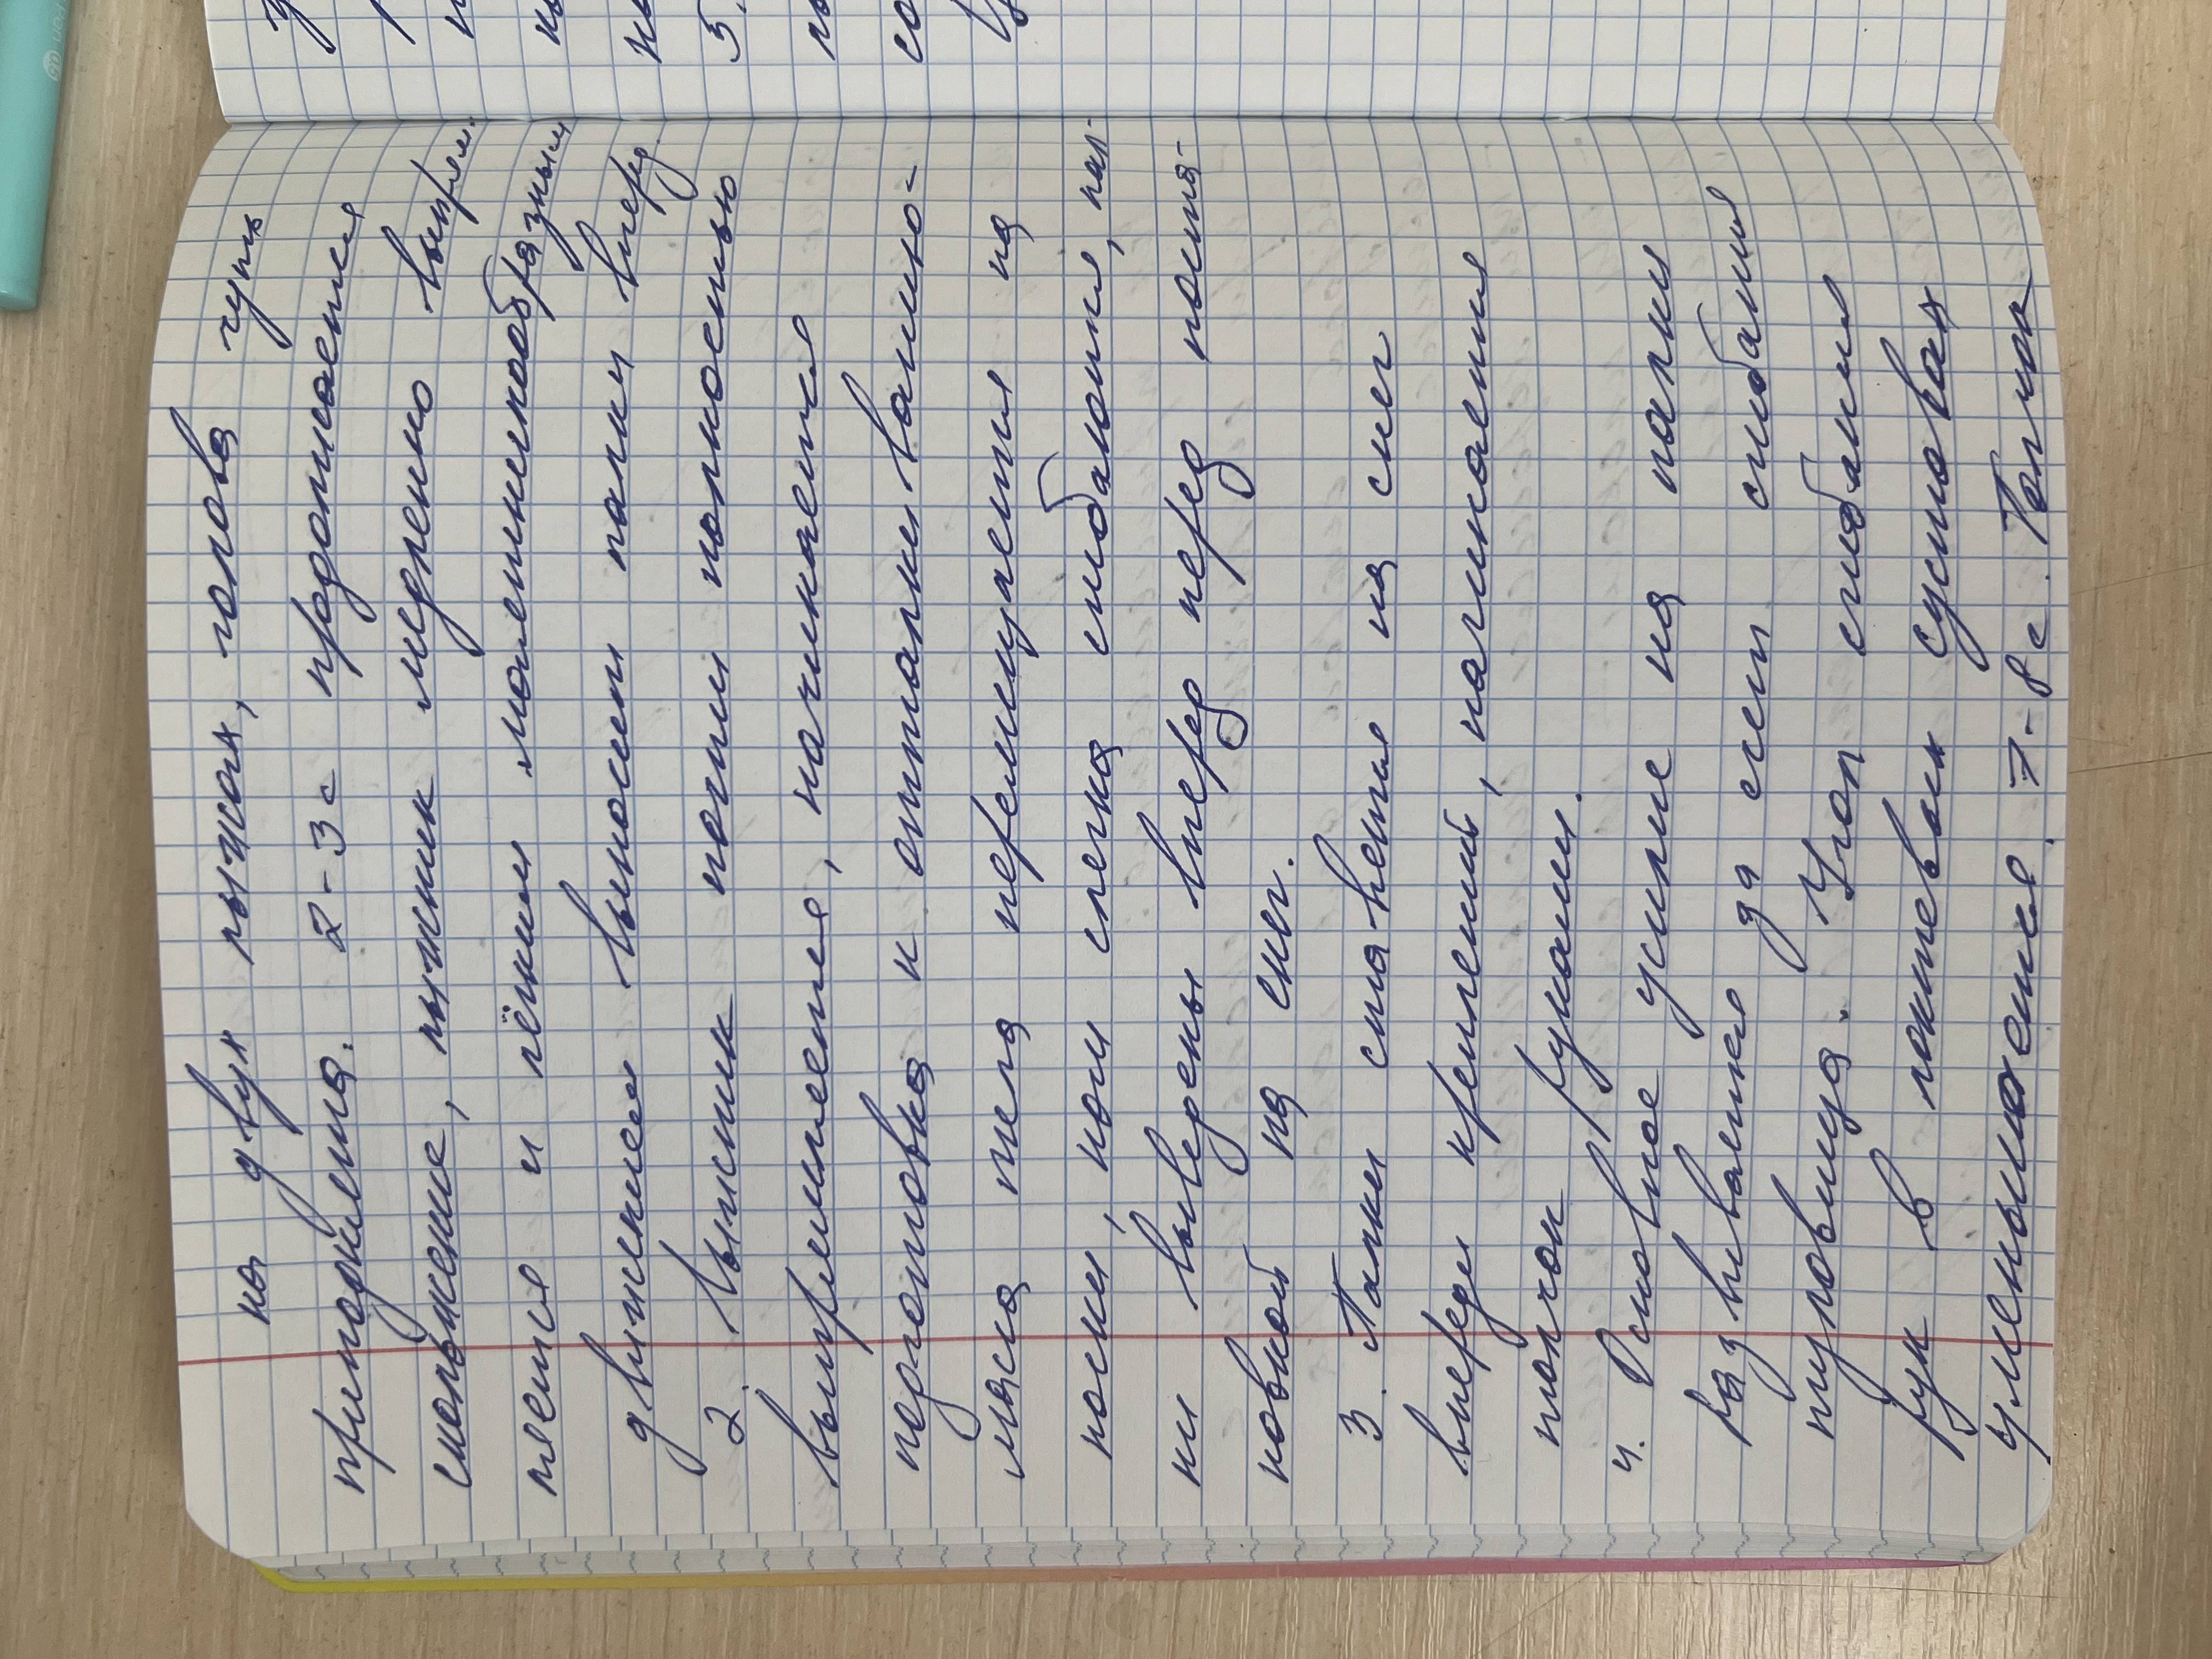 на двух лыжах, голова чуть
приподнята. 2-3 с продолжается
скольжение, лыжник медленно выпрям.
ляется и лёгким маятникообразным
движением выносит палки вперед.
2. Лыжник почти полностью
выпрямляется, начинается
подготовка к отталкиванию-
масса тела перемещается на
носки, ноги слегка сгибаются, пал-
ки выведены вперед перед поста-
новкой на снег.
3. Палки ста-вятся на снег
впереди креплений, начинается
толчок руками.
4. Основное усилие на палки
развивается за счет сгибания
туловища. Угол сгибания
рук в локтевых суставах
уменьшается. 7-8 с. Толчок
5.